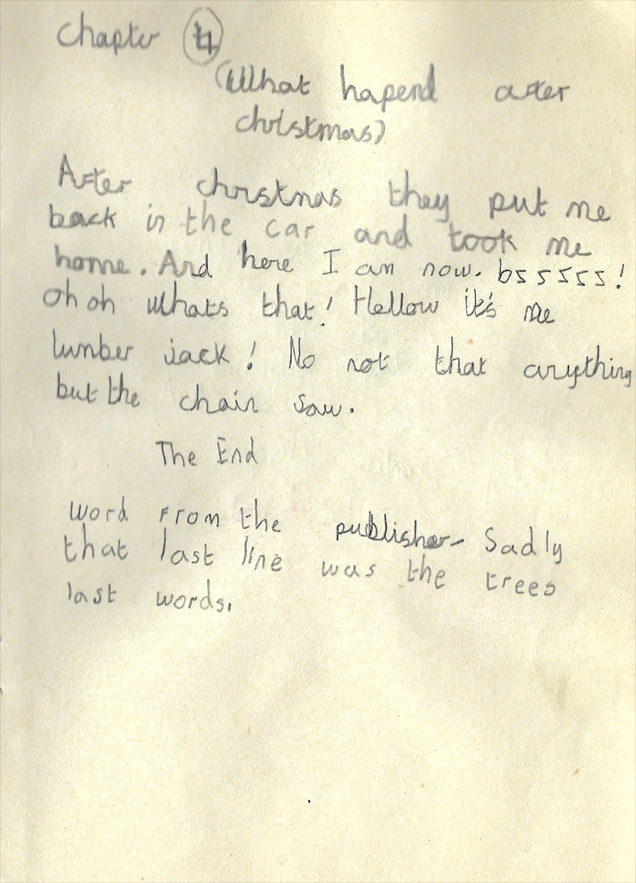 Chapter 4
(What hapend after
christmas)
After christmas they put me
back in the car and took me
home. And here I am now. bsssss!
oh oh whats that! Hellow it's me
lumber jack! No not that anything
but the chain saw.
The End
word from the publisher- Sadly
that last line was the trees
last words.